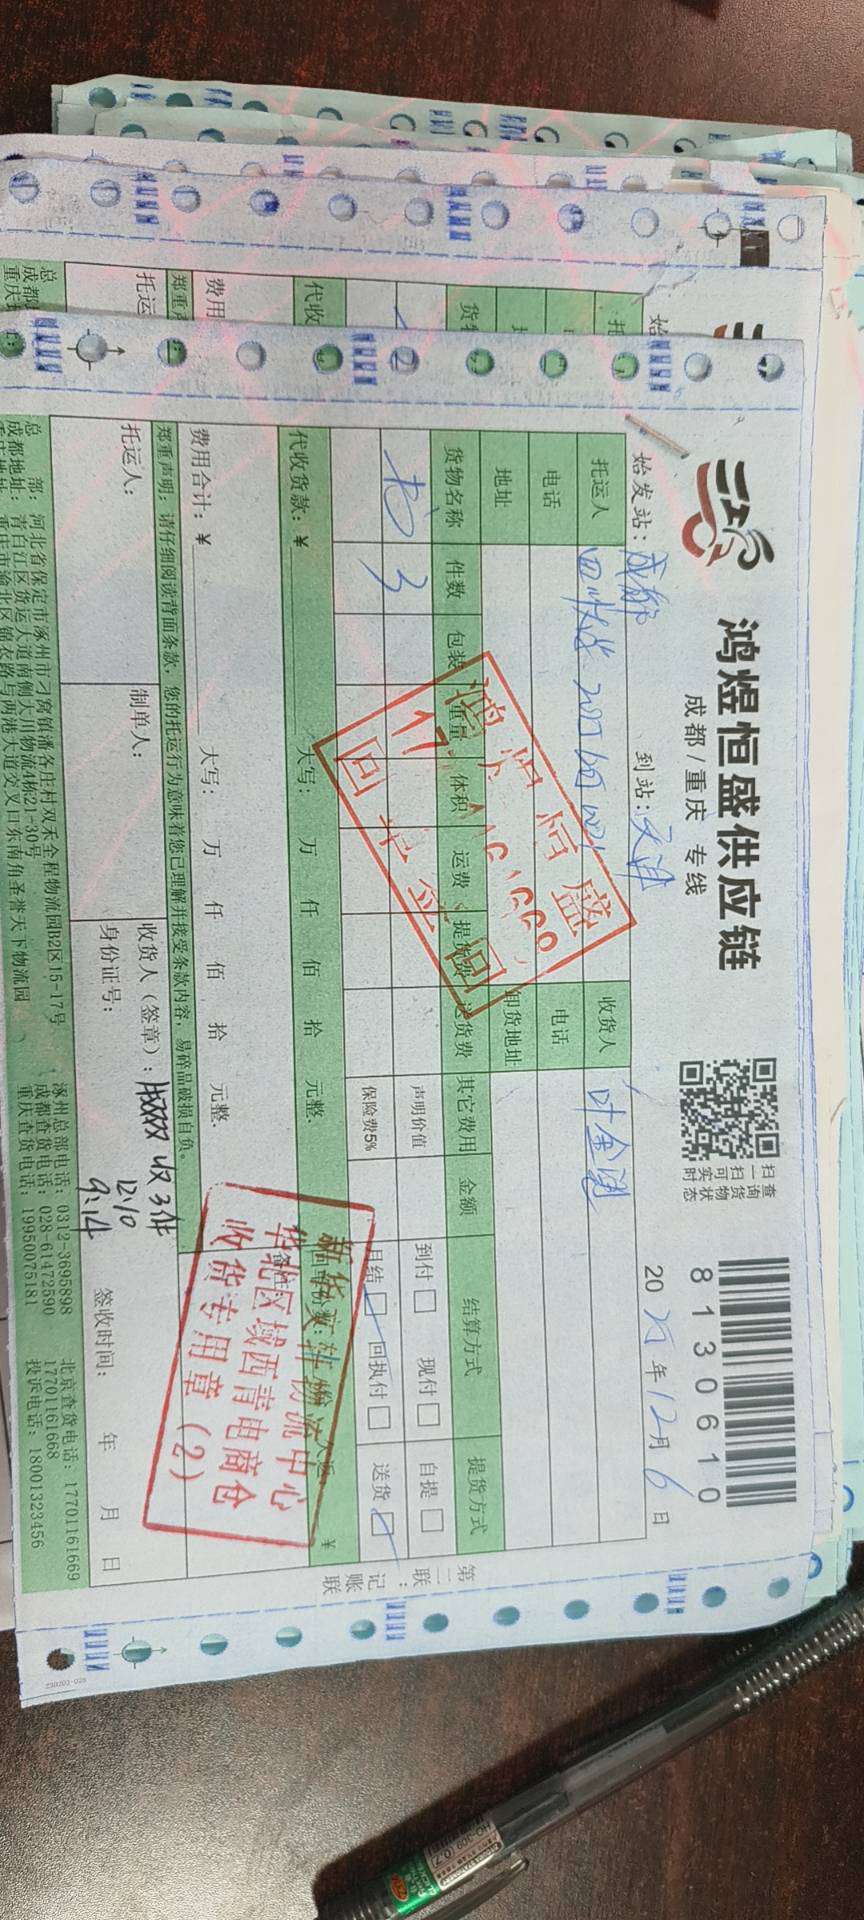 鸿煜恒盛供应链
成都/重庆 专线
扫一扫可实时
查询货物状态
8130610
始发站：成都
到站：天津
20 25 年 12 月 6 日
托运人
收货人 叶金
电话
电话
地址
卸货地址
货物名称 件数 包装 重量 体积 运费 提货费 送货费 其它费用 金额 结算方式 提货方式
书 3
声明价值
到付 现付 自提
保险费5%
月结 回执付 送货
代收货款：¥ 大写： 万 仟 佰 拾 元整
费用合计：¥ 大写： 万 仟 佰 拾 元整
郑重声明：请仔细阅读背面条款，您的托运行为意味者您已理解并接受条款内容，易碎品破损自负。
托运人：
制单人：
收货人（签章）： 收3件
身份证号：
12.10
9:14
签收时间： 年 月 日
总 部：河北省保定市涿州市刁窝镇潘各庄村双禾全程物流园B2区15-17号
成都地址：青白江区货运大道南侧大川物流4栋21-30号
重庆地址：重庆市渝北区锦衣路与两港大道交叉口东南角圣誉天下物流园
涿州总部电话：0312-3695898
成都查货电话：028-61472590
重庆查货电话：19950075181
北京查货电话：17701161669
17701161668
投诉电话：18001323456
第二联：记账联
鸿煜恒盛
回单返回
新华文轩物流中心
华北区域西青电商仓
收货专用章（2）